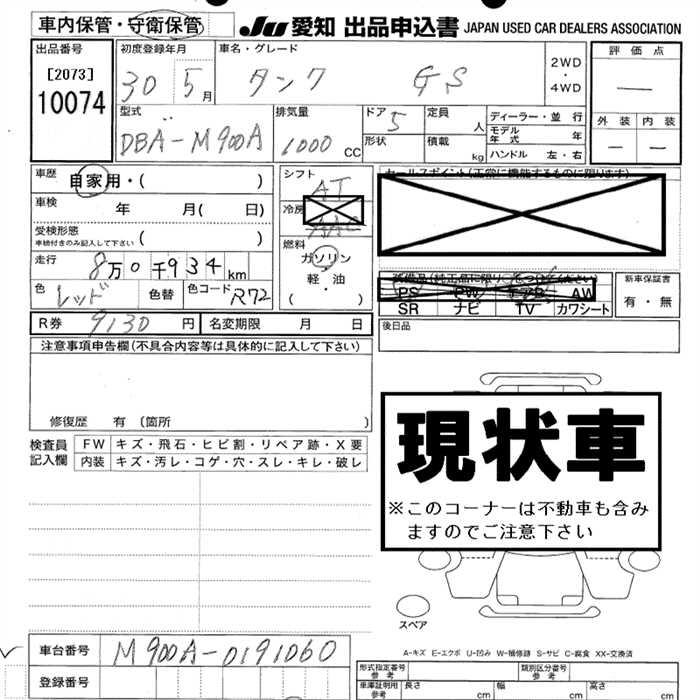 車内保管・守衛保管
JU 愛知 出品申込書 JAPAN USED CAR DEALERS ASSOCIATION
出品番号
[2073]
10074
初度登録年月
30 5月
車名・グレード
タンク GS
2WD
・
4WD
評価点
—
外装 内装
— —
型式
DBA-M900A
排気量
1000 CC
ドア 5
形状
定員 人
積載 kg
ディーラー・並行
モデル年式 年
ハンドル 左・右
車歴 自家用・( )
車検 年 月( 日)
受検形態
車検付きのみ記入して下さい ( )
走行 8万0千934km
色 レッド 色替 色コード R72
R券 9130円 名変期限 月 日
シフト
AT
冷房
AAC
燃料
ガソリン
軽・油
( ・ )
セールスポイント(正常に機能するものに限ります)
PS PW AW
SR ナビ TV カワシート
新車保証書
有・無
後日品
注意事項申告欄(不具合内容等は具体的に記入して下さい)
修復歴 有 (箇所 )
検査員記入欄
FW キズ・飛石・ヒビ割・リペア跡・X要
内装 キズ・汚レ・コゲ・穴・スレ・キレ・破レ
現状車
※このコーナーは不動車も含み
ますのでご注意下さい
スペア
A-キズ E-エクボ U-凹み W-補修跡 S-サビ C-腐食 XX-交換済
車台番号 M900A-0191060
登録番号
型式指定番号 参考
類別区分番号 参考
車庫証明用 参考
長さ cm 幅 cm 高さ cm